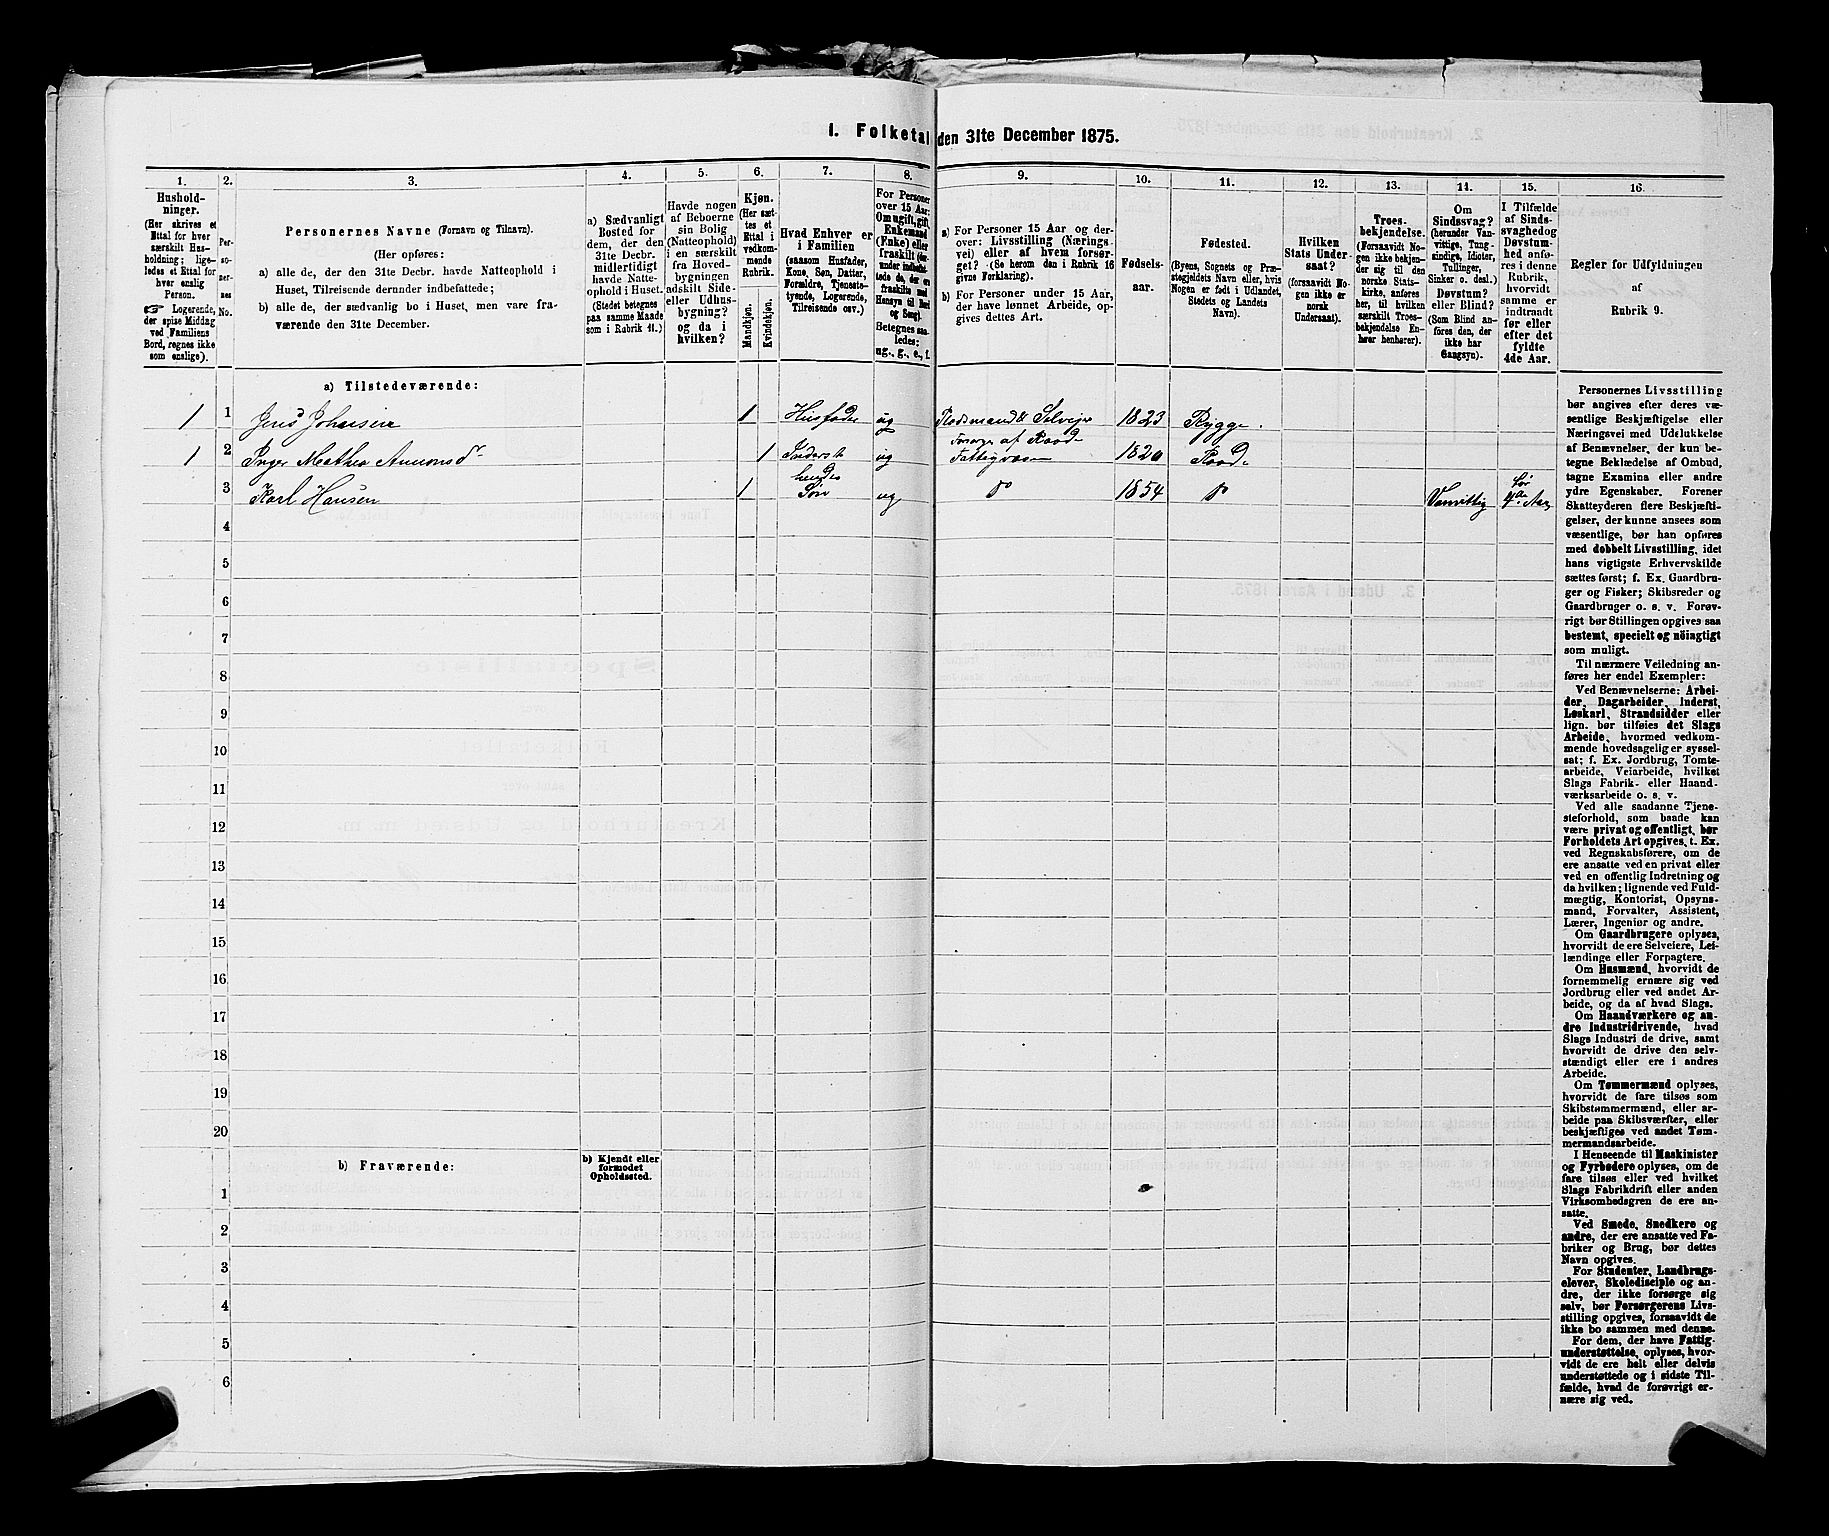 1. Folketal den 31te December 1875.
1.
2.
3.
4.
5.
6.
7.
8.
9.
10.
11.
12.
13.
14.
15.
16.
Hushold-
ninger.
(Her skrives et
Ettal for hver
særskilt Hus-
holdning; lige-
ledes et Ettal for
hver enslig
Person.
☞ Logerende,
der spise Middag
ved Familiens
Bord, regnes ikke
som enslige).
Per-
so-
ner-
nes
No.
Personernes Navne (Fornavn og Tilnavn).
(Her opføres:
a) alle de, der den 31te Decbr. havde Natteophold i
Huset, Tilreisende derunder indbefattede;
b) alle de, der sædvanlig bo i Huset, men vare fra-
værende den 31te December.
a) Sædvanligt
Bosted for
dem, der den
31te Decbr.
midlertidigt
havde Natte-
ophold i Huset.
(Stedet betegnes
paa samme Maade
som i Rubrik 11.)
Havde nogen
af Beboerne
sin Bolig
(Natteophold)
i en særskilt
fra Hoved-
bygningen
adskilt Side-
eller Udhus-
bygning?
og da i
hvilken?
Kjøn.
(Her sæt-
tes et
Ettal i
vedkom-
mende
Rubrik.
Mandkjøn.
Kvindekjøn.
Hvad Enhver er
i Familien
(saasom Husfader,
Kone, Søn, Datter,
Forældre, Tjeneste-
tyende, Logerende,
Tilreisende osv.)
For Personer
over 15 Aar:
Om ugift, gift,
Enkemand
(Enke) eller
fraskilt
Betegnes saa-
ledes:
ug., g., e., f.
a) For Personer 15 Aar og der-
over: Livsstilling (Nærings-
vei) eller af hvem forsør-
get? (Se herom den i Rubrik 16
givne Forklaring).
b) For Personer under 15 Aar,
der have lønnet Arbeide, op-
gives dettes Art.
Fødsels-
aar.
Fødested.
(Byens, Sognets og Præ-
stegjeldets Navn eller, hvis
Nogen er født i Udlandet,
Stedets og Landets
Navn).
Hvilken
Stats Under-
saat?
(forsaavidt No-
gen ikke er
norsk
Undersaat).
Troes-
bekjendelse.
(Forsaavidt No-
gen ikke bekjen-
der sig til den
norske Stats-
kirke, anføres
her, til hvilken
særskilt Troes-
bekjendelse En-
hver henhører).
Om
Sindssvag?
(herunder Van-
vittige, Tung-
sindige, Idioter,
Tullinger,
Sinker o. desl.)
Døvstum?
eller Blind?
(Som Blind an-
føres den, der
ikke har
Gangsyn).
I Tilfælde
af Sinds-
svaghed og
Døvstum-
hed anføres
i denne
Rubrik,
hvorvidt
samme er
indtraadt
før eller
efter det
fyldte
4de Aar.
Regler for Udfyldningen
af
Rubrik 9.
a) Tilstedeværende:
1 1 Jens Johansen 1 Husfader ug Rodemand & Selveier 1823 Rygge.
1 2 Inger Mathea Amonsdr 1 Inderst ug Forsørges af Raade Fattigvæsen 1820 Raade
3 Karl Hansen 1 hendes Søn ug do 1854 do Vanvittig før 4de Aar
4
5
6
7
8
9
10
11
12
13
14
15
16
17
18
19
20
b) Fraværende:
b) Kjendt eller
formodet
Opholdssted.
1
2
3
4
5
6
Personernes Livsstilling
bør angives efter deres væ-
sentlige Beskjæftigelse eller
Næringsvei med Udelukkelse
af Benævnelser, der kun be-
tegne Beklædelse af Ombud,
tagne Examina eller andre
ydre Egenskaber. Forener
Skatteyderen flere Beskjæfti-
gelser, der kunne ansees som
væsentlige, bør han opføres
med dobbelt Livsstilling, idet
hans vigtigste Erhvervskilde
sættes først; f. Ex. Gaardbru-
ger og Fisker; Skibsreder og
Gaardbruger o. s. v. Forøv-
rigt bør Stillingen opgives saa
bestemt, specielt og nöiagtigt
som muligt.
Til nærmere Veiledning an-
føres her endel Exempler:
Ved Benævnelserne: Arbei-
der, Dagarbeider, Inderst,
Løskarl, Strandsidder eller
lign. bør tilføies det Slags
Arbeide, hvormed vedkom-
mende hovedsagelig er syssel-
sat; f. Ex. Jordbrug, Tomte-
arbeide, Veiarbeide, hvilket
Slags Fabrik- eller Haand-
værksarbeide o. s. v.
Ved alle saadanne Tjene-
steforhold, som baade kan
være privat og offentligt, bør
Forholdets Art opgives, t. Ex.
ved Regnskabsførere, om de
ere ansatte ved en privat eller
ved en offentlig Indretning og
da hvilken; lignende ved Fuld-
mægtig, Kontorist, Opsyns-
mand, Forvalter, Assistent,
Lærer, Ingeniør og andre.
Om Gaardbrugere oplyses,
hvorvidt de ere Selveiere, Lei-
lændinge eller Forpagtere.
Om Husmænd, hvorvidt de
fornemmelig ernære sig ved
Jordbrug eller ved andet Ar-
beide, og da af hvad Slags.
Om Haandværkere og an-
dre Industridrivende, hvad
Slags Industri de drive, samt
hvorvidt de drive den selv-
stændigt eller ere i andres
Arbeide.
Om Tømmermænd oplyses,
hvorvidt de fare tilsøs som
Skibstømmermænd, eller ar-
beide paa Skibsværfter, eller
beskjæftiges ved andet Tøm-
mermandsarbeide.
I Henseende til Maskinister
og Fyrbødere oplyses, om de
fare tilsøs eller ved hvilket
Slags Fabrikdrift eller anden
Virksomhedsgren de ere an-
satte.
Ved Smede, Snedkere og
andre, der ere ansatte ved Fa-
briker og Brug, bør dettes
Navn opgives.
For Studenter, Landbrugs-
elever, Skoledisciple og an-
dre, der ikke forsørge sig
selv, bør Forsørgerens Livs-
stilling opgives, forsaavidt de
ikke bo sammen med denne.
For dem, der have Fattig-
understøttelse, oplyses, hvor-
vidt de ere helt eller delvis
understøttede og i sidste Til-
fælde, hvad de forøvrigt er-
nære sig ved.